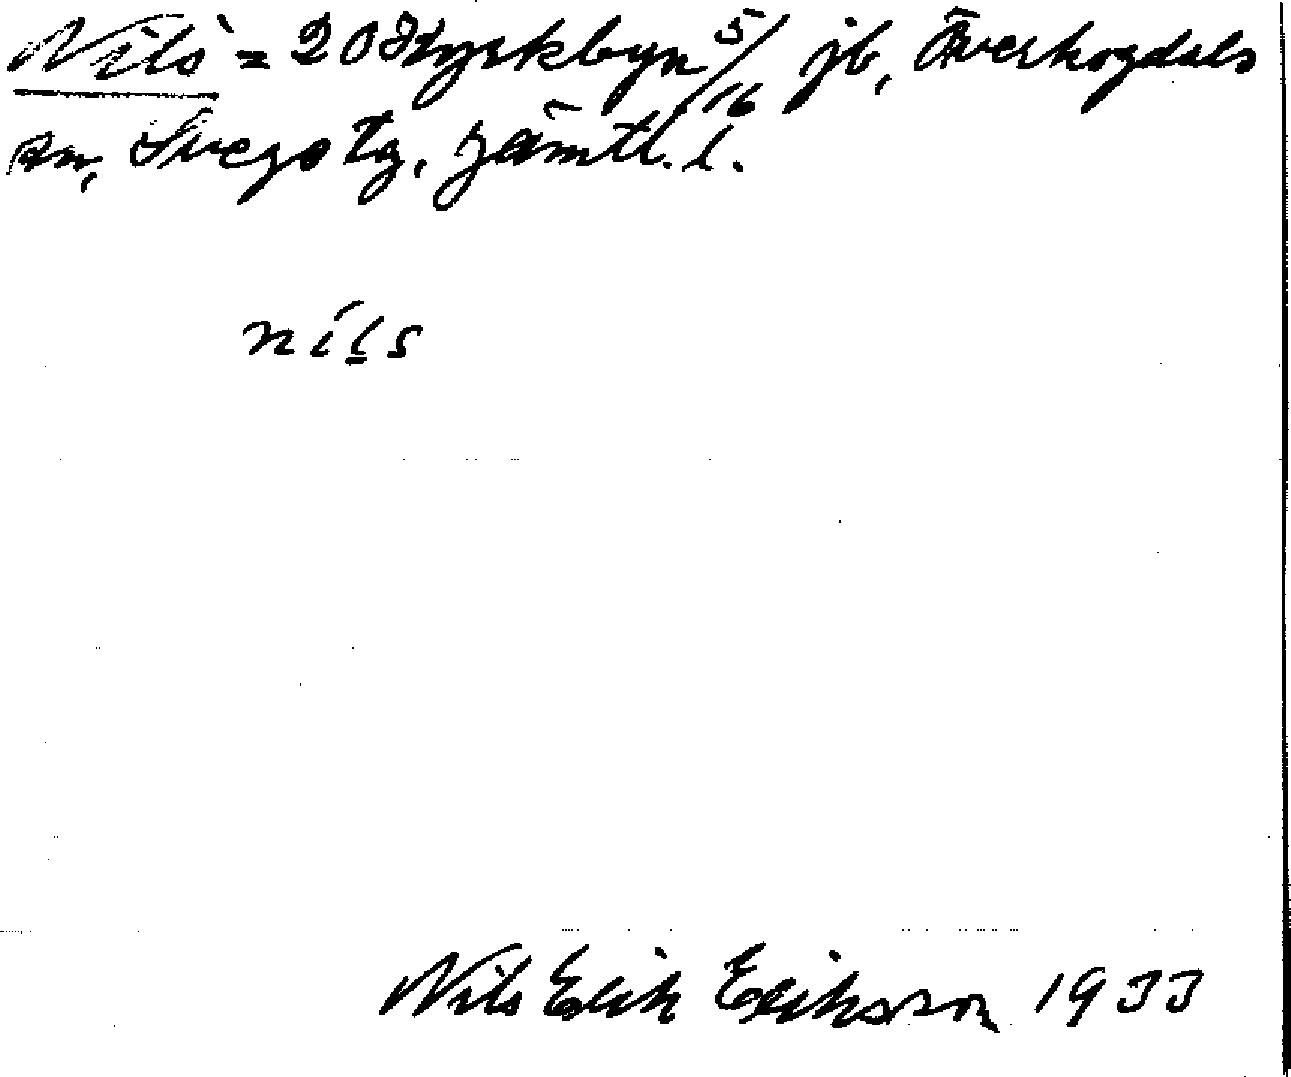 Nils = 20 Kyrkbyn 5/16 jb, Överhogdals
sn, Svegs tg. Jämtl. l.
níls
Nils Erik Eriksson 1933